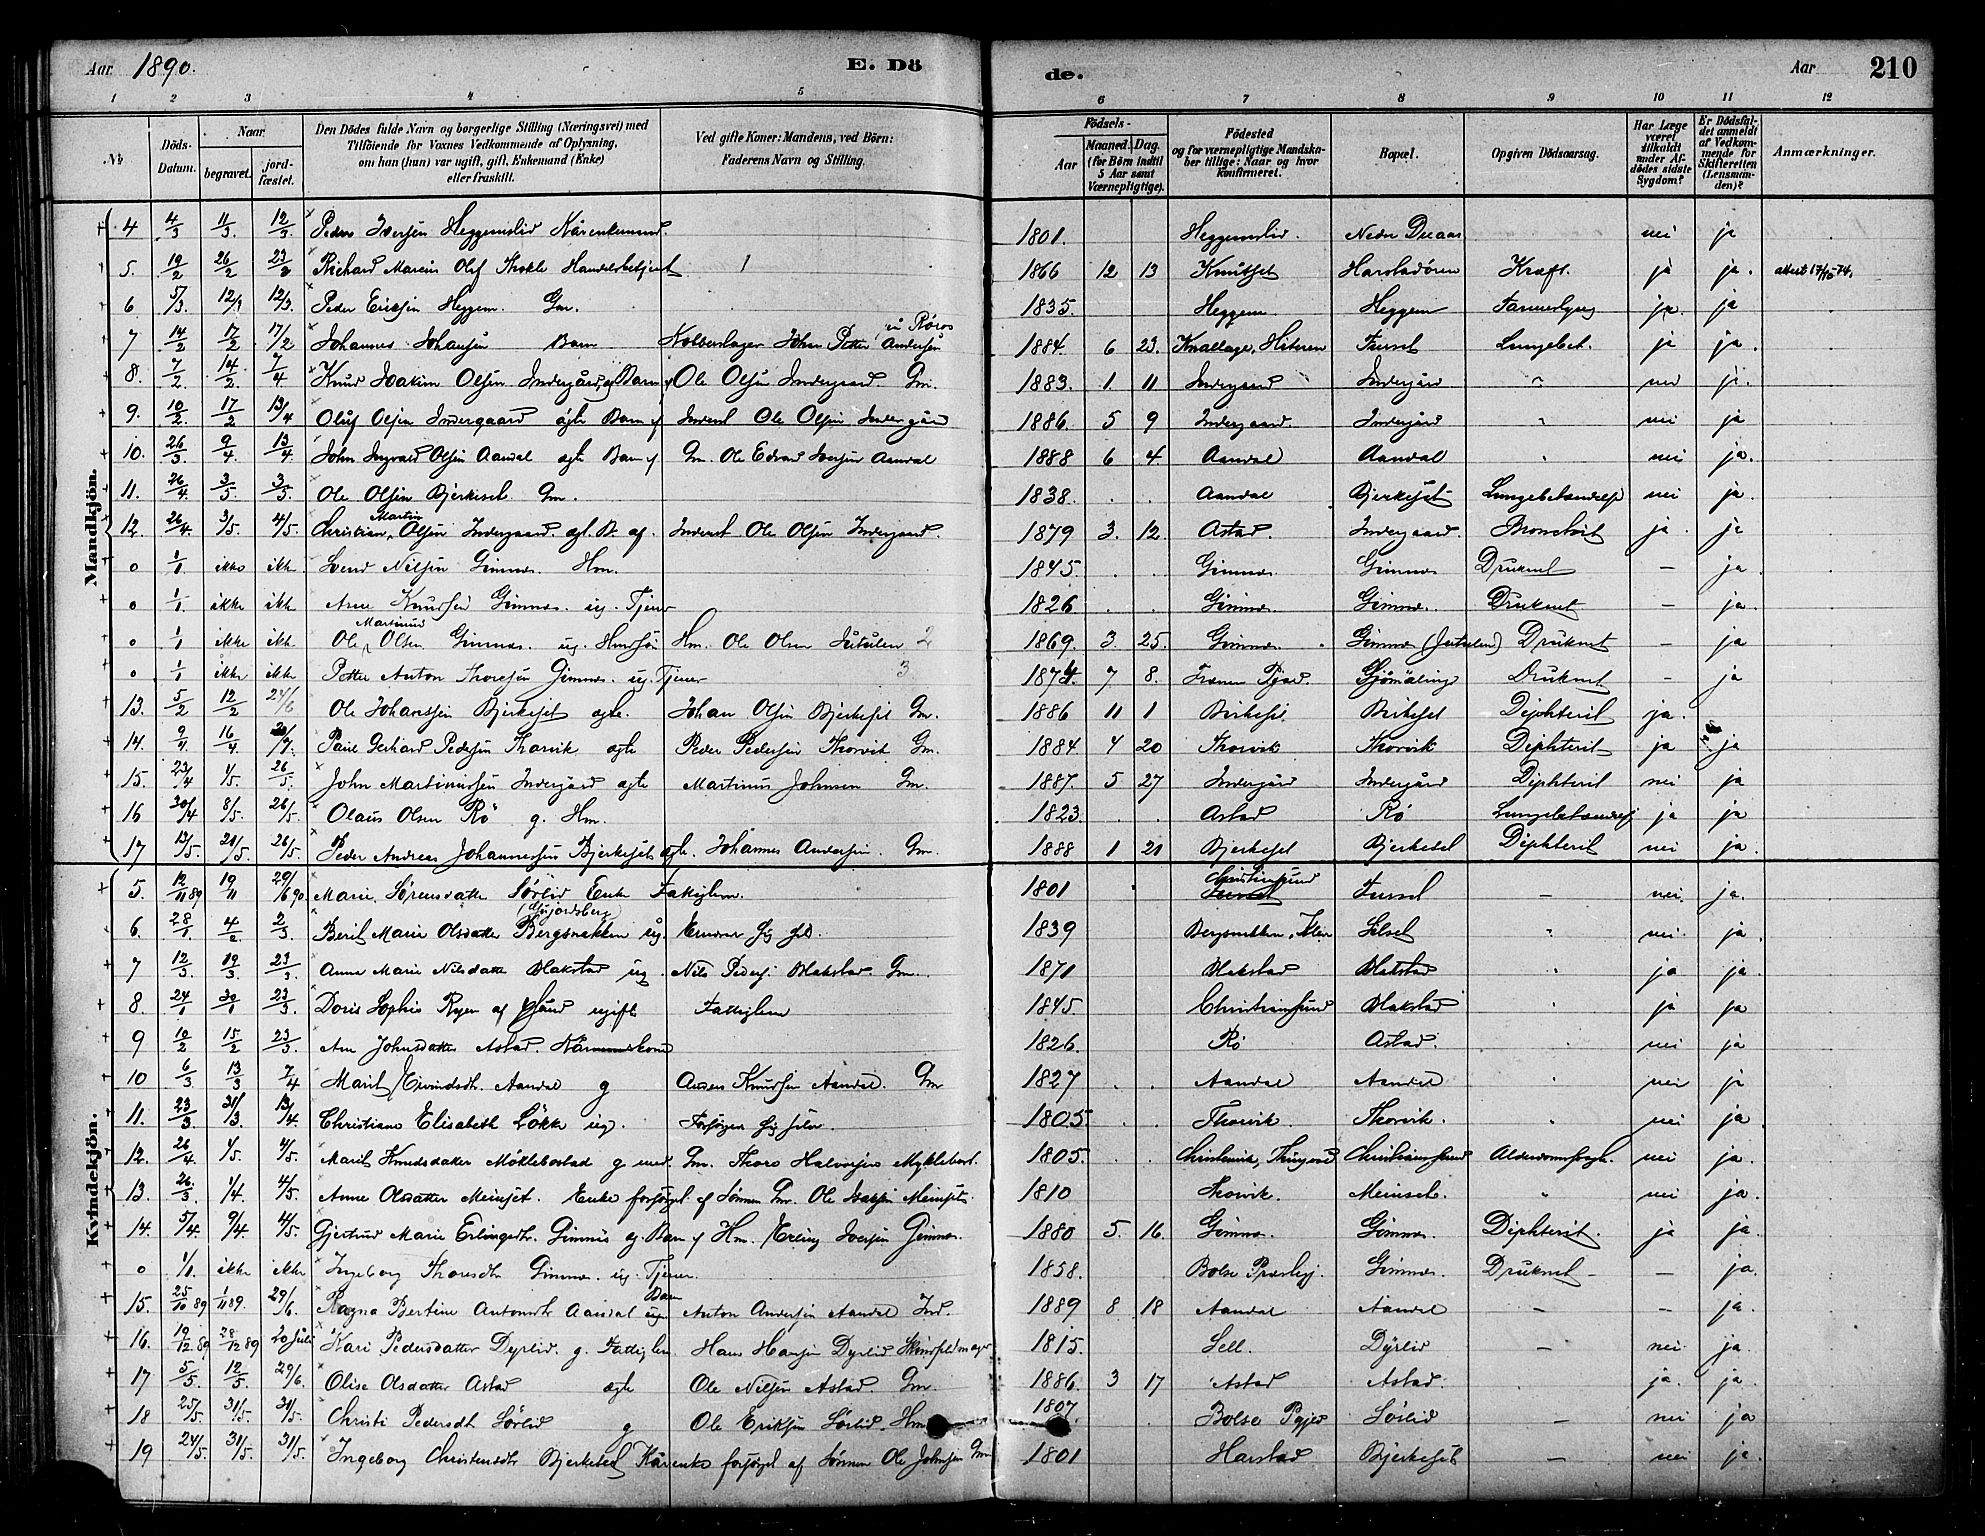 Aar 1890. E. Dö de. Aar 210
1 2 3 4 5 6 7 8 9 10 11 12
No
Döds-Datum.
Naar
begravet.
jordfæstet.
Den Dödes fulde Navn og borgerlige Stilling (Næringsvei) med
Tilföiende for Voxnes Vedkommende af Oplysning,
om han (hun) var ugift, gift, Enkemand (Enke)
eller fraskilt.
Ved gifte Koner: Mandens, ved Börn:
Faderens Navn og Stilling.
Födsels-
Aar
Maaned. Dag.
(for Börn indtil
5 Aar samt
Værnepligtige).
Födested
og for værnepligtige Mandska-
ber tillige: Naar og hvor
konfirmeret.
Bopæl.
Opgiven Dödsaarsag.
Har Læge
været
tilkaldt
under Af-
dödes sidste
Sygdom?
Er Dödsfal-
det anmeldt
af Vedkom-
mende for
Skifteretten
(Lensman-
den)?
Anmærkninger.
Mandkjön.
4 4/3 11/3. 12/3. Peder Iversen Heggemslid Kårenkemand. 1801. Heggemslid. nei ja
5. 19/2 26/2 Richard Marius Olsf Handelsbetjent 1 1866 12 13 Knutset ja ja.
6 5/3. 12/3 12/3. Peder Eriksen Heggem. Gm. 1835. Heggem Heggem ja. ja
7 14/2 17/2 17/2 Johannes Johansen Barn Johan Petter Andersen Røros 1884. 6 23. Hiteren Fursel Lungebet. ja ja.
8. 7/2 14/2 7/4 Knud Joakim Olsen Indergård Barn af Ole Olsen Indergaard Gm. 1883. 1 11 Indergaard Indergård " nei ja.
9. 10/2 17/2 13/4 Oluf Olsen Indergaard ægte Barn af Inderst Ole Olsen Indergård 1886. 5 9 Indergaard. Indergård " nei ja
10. 26/3 9/4 13/4 John Ingvald Olsen Aandal ægte Barn af Gm. Ole Edvard Iversen Aandal 1888 6 4. Aandal Aandal " nei ja.
11. 26/4 3/5 3/5 Ole Olsen Bjerkeset Gm. 1838. Aandal Bjerkeset Lungebetændelse nei ja.
12. 26/4. 3/5. 4/5. Christian Martin Olsen Indergaard. ægt. B. af. Inderst Ole Olsen Indergaard. 1879 3. 12. Astad. Indergaard. ja. ja
0 1/1 ikke ikke Svend Nilsen Gimnæs. Hm. 1845. Gimnæs Gimnæs Druknet — ja.
0 1/1. ikke ikke Arne Knudsen Gimnæs. ug. Tjener 1826 Gimnæs. Gimnæs. Druknet — ja.
0 1/1 ikke ikke Ole Martinus Olsen Gimnæs. ug. Hm. Ole Olsen Jutulen 2 1869. 3. 25. Gimnæs. Gimnæs (Jutulen) Druknet — ja
0 1/1 ikke ikke Petter Anton Thoresen Gimnæs. ug. Tjener 3 1874. 7 8. Druknet — ja
13. 5/2 12/2 24/6 Ole Johansen Bjerkeset ægte. Johan Olsen Bjerkeset Gm. 1886 11 1 Birkeset. Birkeset Diphterit ja.
14. 9/4 16/4 Paul Gerhard Pedersen Thorvik ægte Peder Pedersen Thorvik Gm. 1884 4 20 Thorvik Thorvik Diphterit ja ja
15. 23/4 1/5. 26/5 John Martinussen Indergård ægte Martinus Johnsen Gm. 1887. 5 27 Indergård Indergård Diphterit nei ja
16 30/4 8/5. 26/5. Olaus Olsen Rö g. Hm. 1823. Astad Rö Lungebetændelse ja ja
17 13/5. 21/5. 26/5. Peder Andreas Johannessen Bjerkeset ægte. Johannes Andersen. Gm. 1888 1 21 Bjerkeset Bjerkeset Diphterit nei ja.
Kvindekjön.
5. 12/11 89 19/11 29/6 90. Marie Sörensdatter Sörlid Enke Fattiglem. 1801 Christiansund Fursel — nei. ja.
6. 28/1 4/2 2/3 Berit Marie Olsdatter Bergsnakken ug. 1839 nei ja
7 12/3 19/3 23/3. Anne Marie Nilsdatter Blakstad ug. Nils Peders. Blakstad. Gm. 1871 Blakstad Blakstad ja ja.
8. 24/1 30/1 23/3. Doris Sophie ugift Fattiglem 1845. Christiansund Blakstad ja ja
9 10/2 15/2 23/3. Ane Johnsdatter Astad. 1826. Rö Astad. nei ja
10 6/3 13/3 7/4 Marit Eivindsdt. Aandal g Anders Knudsen Aandal. Gm 1827 Aandal Aandal nei ja
11. 23/3 31/3 13/4 Christiane Elisabeth Lökke ug. Forsörger sig selv. 1805. Thorvik. Thorvik. nei ja
12. 26/4 1/5. 4/5. Marit Knudsdatter Möklebostad g. med Gm. Thore Halvorsen Myklebost. 1805. Christiansund nei ja.
13. 26/3. 1/4 4/5 Anne Olsdatter Meinset. Enke forsörget af Sönnen Gm. Ole Meinset. 1810 Thorvik. Meinset. " nei ja.
14. 5/4. 9/4. 4/5. Gjertrud Marie Erlingsdt. Gimnæs æg. Barn af Hm. Erling Iversen Gimnæs. 1880 5. 16. Gimnæs. Gimnæs. Diphterit. ja ja.
0 1/1. ikke ikke Ingeborg Thoresdt. Gimnæs. ug. Tjener. 1858. Bolsö Præstegj. Gimnæs. Druknet — — ja.
15. 25/10 89 1/11 89. 29/6. Ragna Bertine Antonsdt. Aandal Barn Anton Andersen Aandal Ind. 1889 8 18 Aandal Aandal — — ja.
16. 19/12 89 28/12 89 20 Juli Kari Pedersdatter Dyrlid. g. Fattiglem Hans Hansen Dyrlid 1815. Sell. Dyrlid — nei ja.
17 5/5. 12/5. 29/6. Olise Olsdatter Astad ægte Ole Nilsen Astad. Gm. 1886. 3 17 Astad Astad. ja. ja.
18 25/5. 31/5. 31/5. Christi Pedersdt. Sörlid g Ole Eriksen Sörlid. Hm 1807 Bolsö Sörlid — nei ja
19 24/5. 31/5. 31/5. Ingeborg Christensdt. Bjerkeset Kårenke forsörget af Sönnen Ole Johnsen Gm 1801 Harstad Bjerkeset — nei ja.